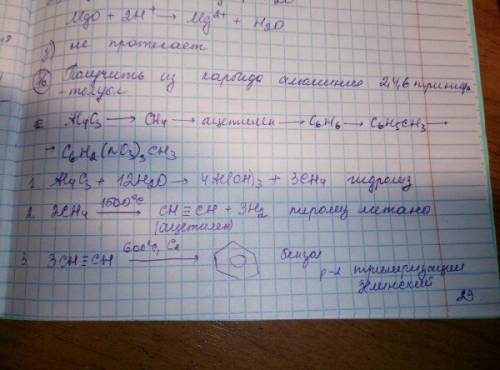 MgO + 2H⁺ → Mg²⁺ + H₂O
не протекает
Получить из карбида алюминия 2,4,6 тринитро
-толуол
Al₄C₃ → CH₄ → ацетилен → C₆H₆ → C₆H₅CH₃ →
→ C₆H₂(NO₃)₃CH₃
1. Al₄C₃ + 12H₂O → 4Al(OH)₃ + 3CH₄ гидролиз
2. 2CH₄ 1500°C → CH≡CH + 3H₂ пиролиз метана
(ацетилен)
3. 3CH≡CH 600°C, Cа → бензол
р-я тримеризации
Зелинский
29